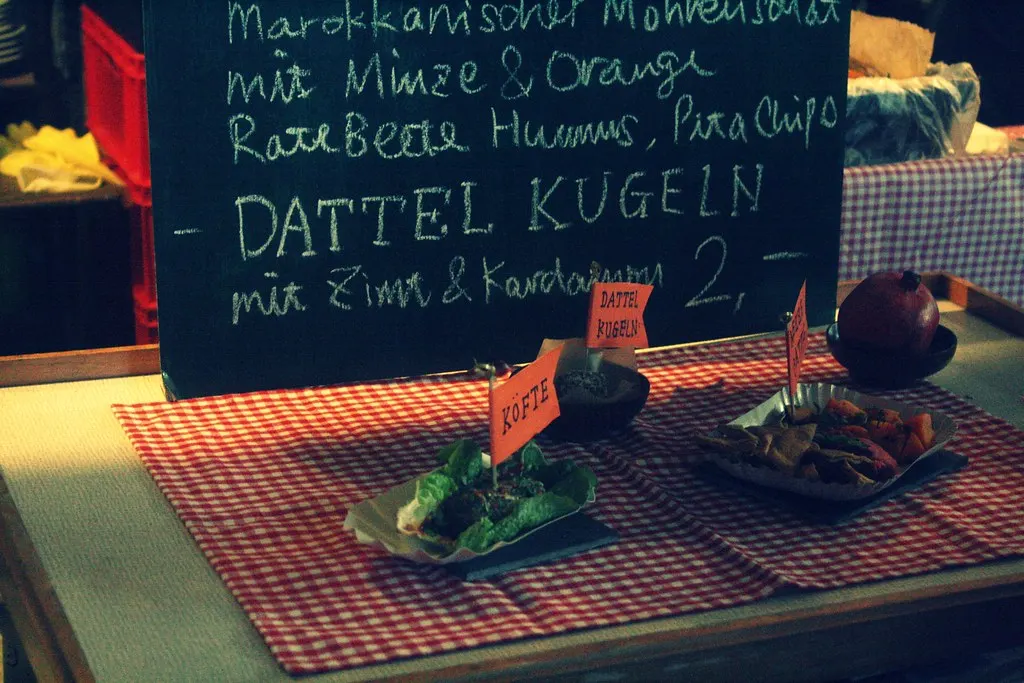 Marokkanischer Möhrensalat
mit Minze & Orange
Rote Beete Hummus, Pita Chips
- DATTEL KUGELN
mit Zimt & Kardamom 2,-
DATTEL
KUGELN
KÖFTE